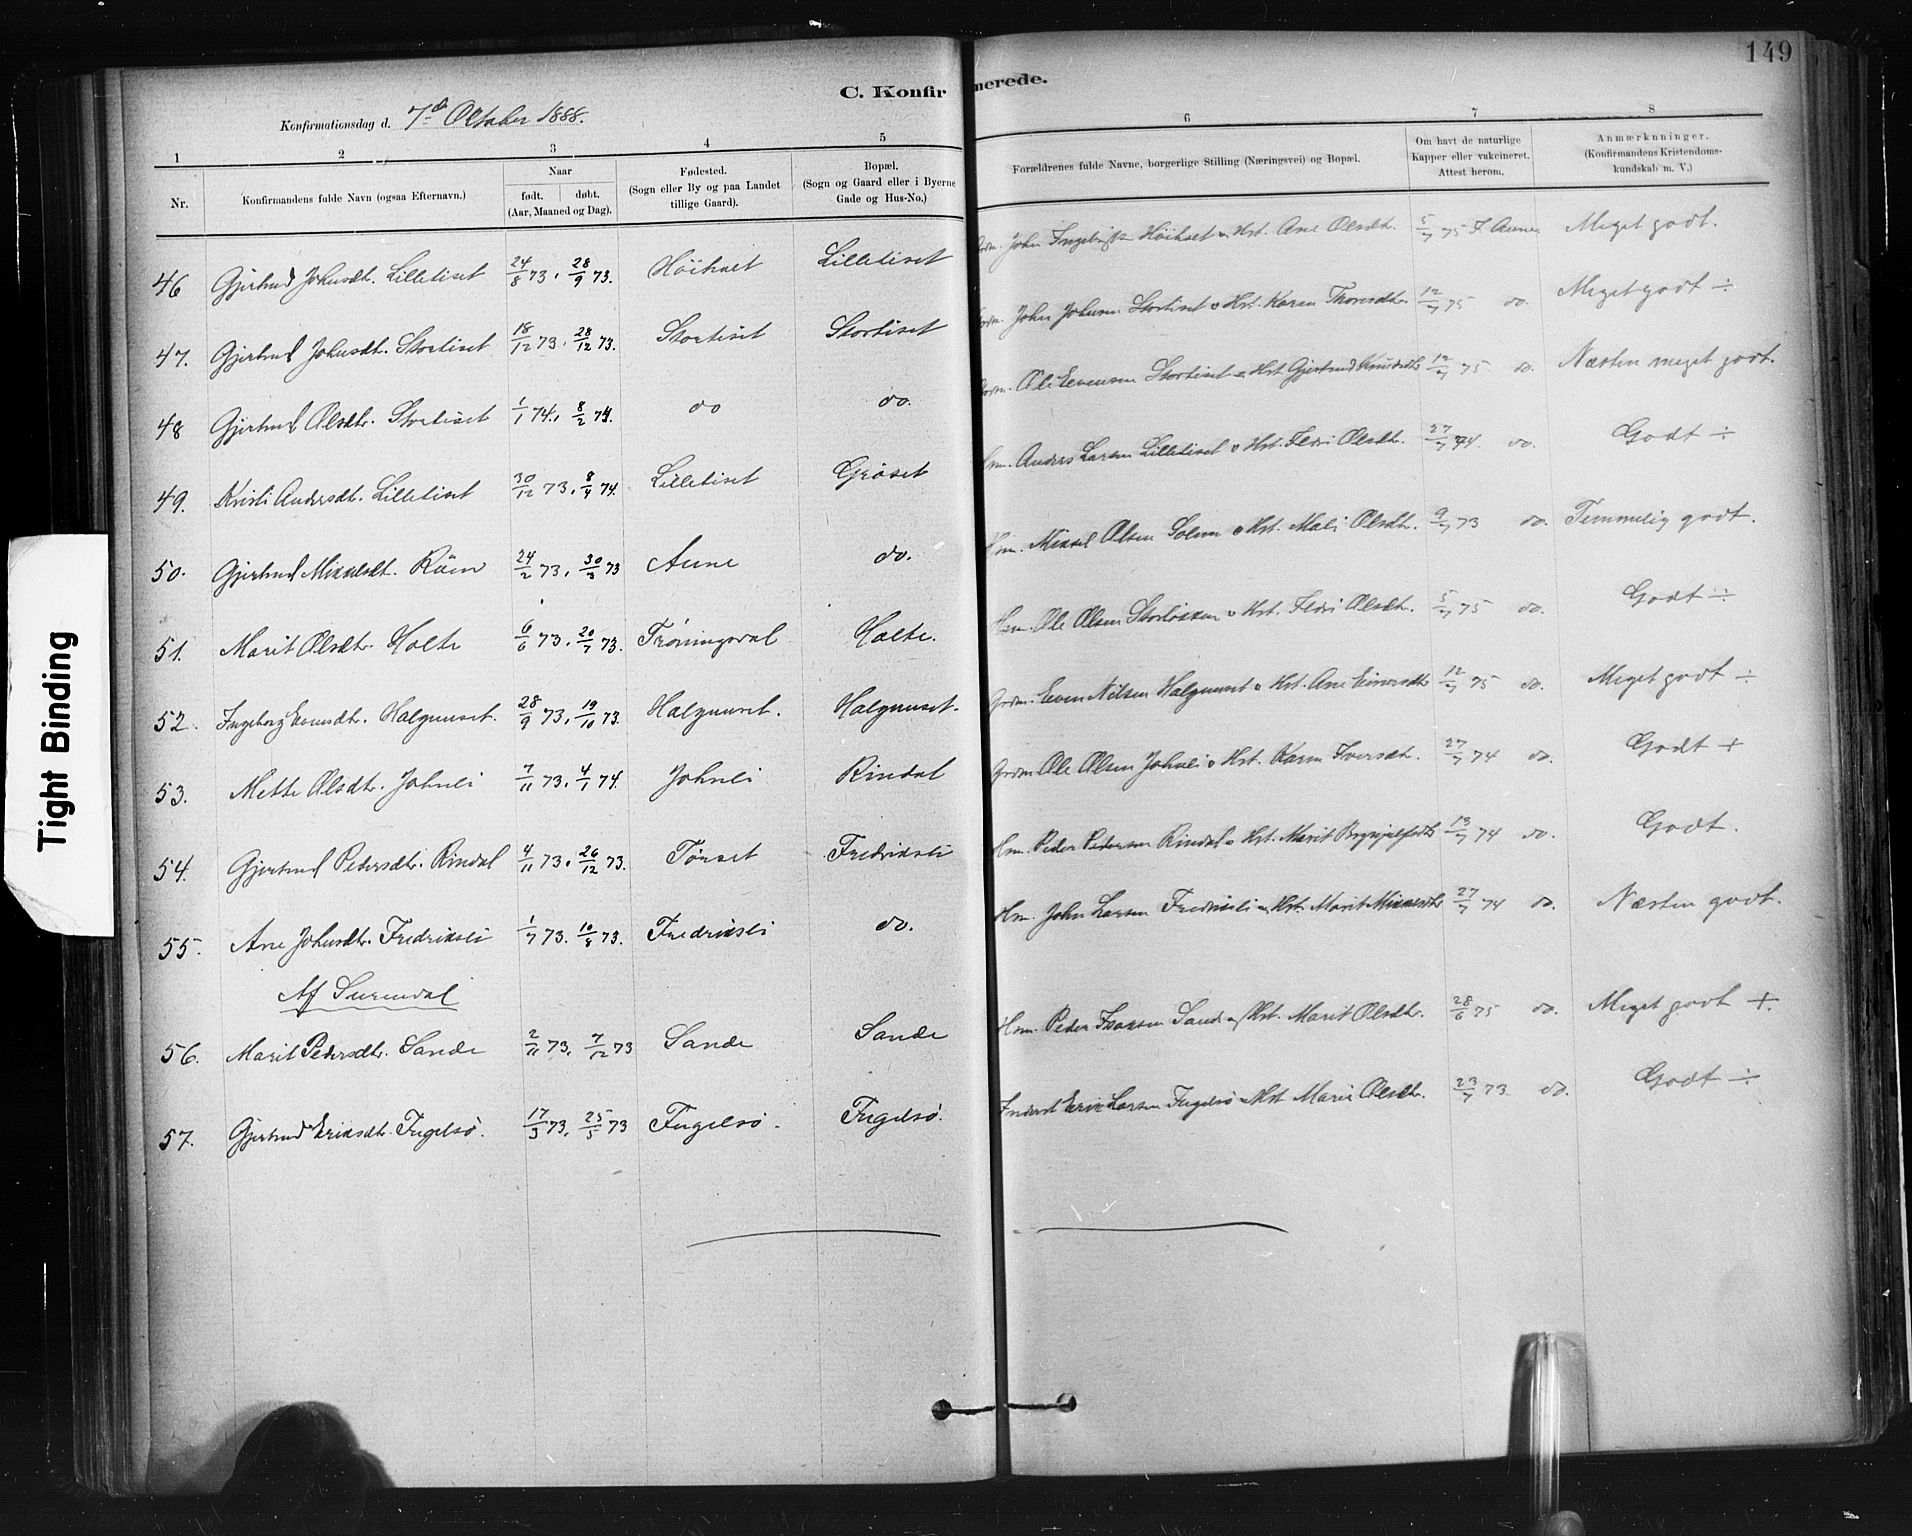 149
C. Konfirmerede.
Konfirmationsdag d. 7de Oktober 1888.
1 2 3 4 5 6 7 8
Nr. Konfirmandens fulde Navn (ogsaa Efternavn.) Naar født. døbt. (Aar, Maaned og Dag). Fødested. (Sogn eller By og paa Landet tillige Gaard). Bopæl. (Sogn og Gaard eller i Byerne Gade og Hus-No.) Forældrenes fulde Navne, borgerlige Stilling (Næringsvei) og Bopæl. Om havt de naturlige Kapper eller vakcineret. Attest herom. Anmærkninger. (Konfirmandens Kristendomskundskab m. V.)
46 Gjertrud Johnsdt. Lilletiset 24/8 73. 28/9 73. Höiholt Lilletiset John Höiholt o Hst. Ane Olsdt. 5/7 75 F. Aune Meget godt.
47. Gjertrud Johnsdt. Stortiset 18/12 73. 28/12 73. Stortiset Stortiset John Johnsen Stortiset o Hst. Karen Thoresdtr. 12/7 75 do. Meget godt ÷
48 Gjertrud Olsdtr. Stortiset 1/1 74. 8/2 74. do do. Ole Evensen Stortiset o Hst. Gjertrud Knudsdtr 12/7 75 do. Næsten meget godt.
49. Kristi Andersdt. Lilletiset 30/12 73. 8/4 74. Lilletiset Gröset Hm. Anders Larsen Lilletiset o Hst. Eldri Olsdtr. 27/7 74. do. Godt ÷
50. Gjertrud Mikkelsdt. Röen 24/2 73. 30/3 73 Aune do. Hm. Mikkel Olsen Solem o Hst. Mali Olsdtr. 9/7 73 do. Temmelig godt.
51. Marit Olsdtr. Holte 6/6 73. 20/7 73. Tröningsdal Holte. Hsm. Ole Olsen o Hst. Eldri Olsdtr. 5/7 75 do. Godt ÷
52. Ingeborg Evensdt. Halgunset. 28/9 73. 19/10 73. Halgunset. Halgunset. Grdm. Even Nilsen Halgunset o Hst. Ane Einersdtr 12/7 75 do. Meget godt ÷
53. Mette Olsdtr. Johnli 7/11 73. 4/1 74. Johnli Rindal Grdm. Ole Olsen Johnli o Hst. Karen Iversdt. 27/7 74 do. Godt +
54. Gjertrud Pedersdtr. Rindal 4/11 73. 26/12 73. Törset Fredriksli Hm. Peder Pedersen Rindal o Hst. Marit Brynjulfsdtr 13/7 74 do. Godt.
55. Ane Johnsdtr. Fredriksli 1/7 73. 10/8 73. Fredriksli do. Hm. John Larsen Fredriksli o Hst. Marit Mikkelsdtr 27/7 74 do. Næsten godt.
Af Surendal
56. Marit Pedersdtr. Sande 2/11 73. 7/12 73 Sande Sande Hsm. Peder Isaksen Sande og Hst. Marit Olsdtr. 28/6 75 do. Meget godt +.
57. Gjertrud Eriksdt. Fugelsö. 17/3 73. 25/5 73 Fugelsö. Fugelsö. Inderst Erik Larsen Fugelsö o Hst. Marit Olsdtr. 23/7 73 do. Godt ÷
Tight Binding